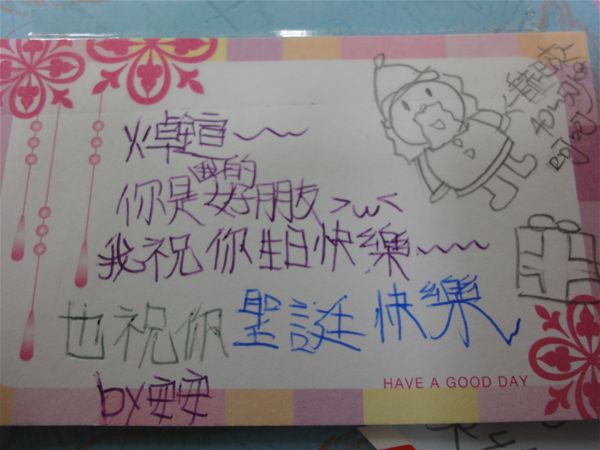 你是我的好朋友 >w<
我祝你生日快樂~~
也祝你聖誕快樂~
by安安
HAVE A GOOD DAY